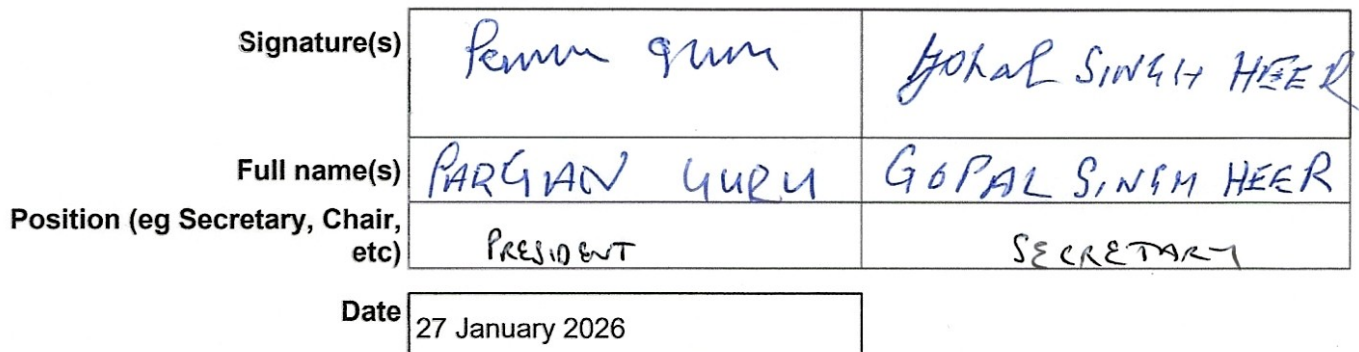 Signature(s) Gopal SINGH HEER
Full name(s) PARGIAN GURU GOPAL SINGH HEER
Position (eg Secretary, Chair,
etc) PRESIDENT SECRETARY
Date 27 January 2026